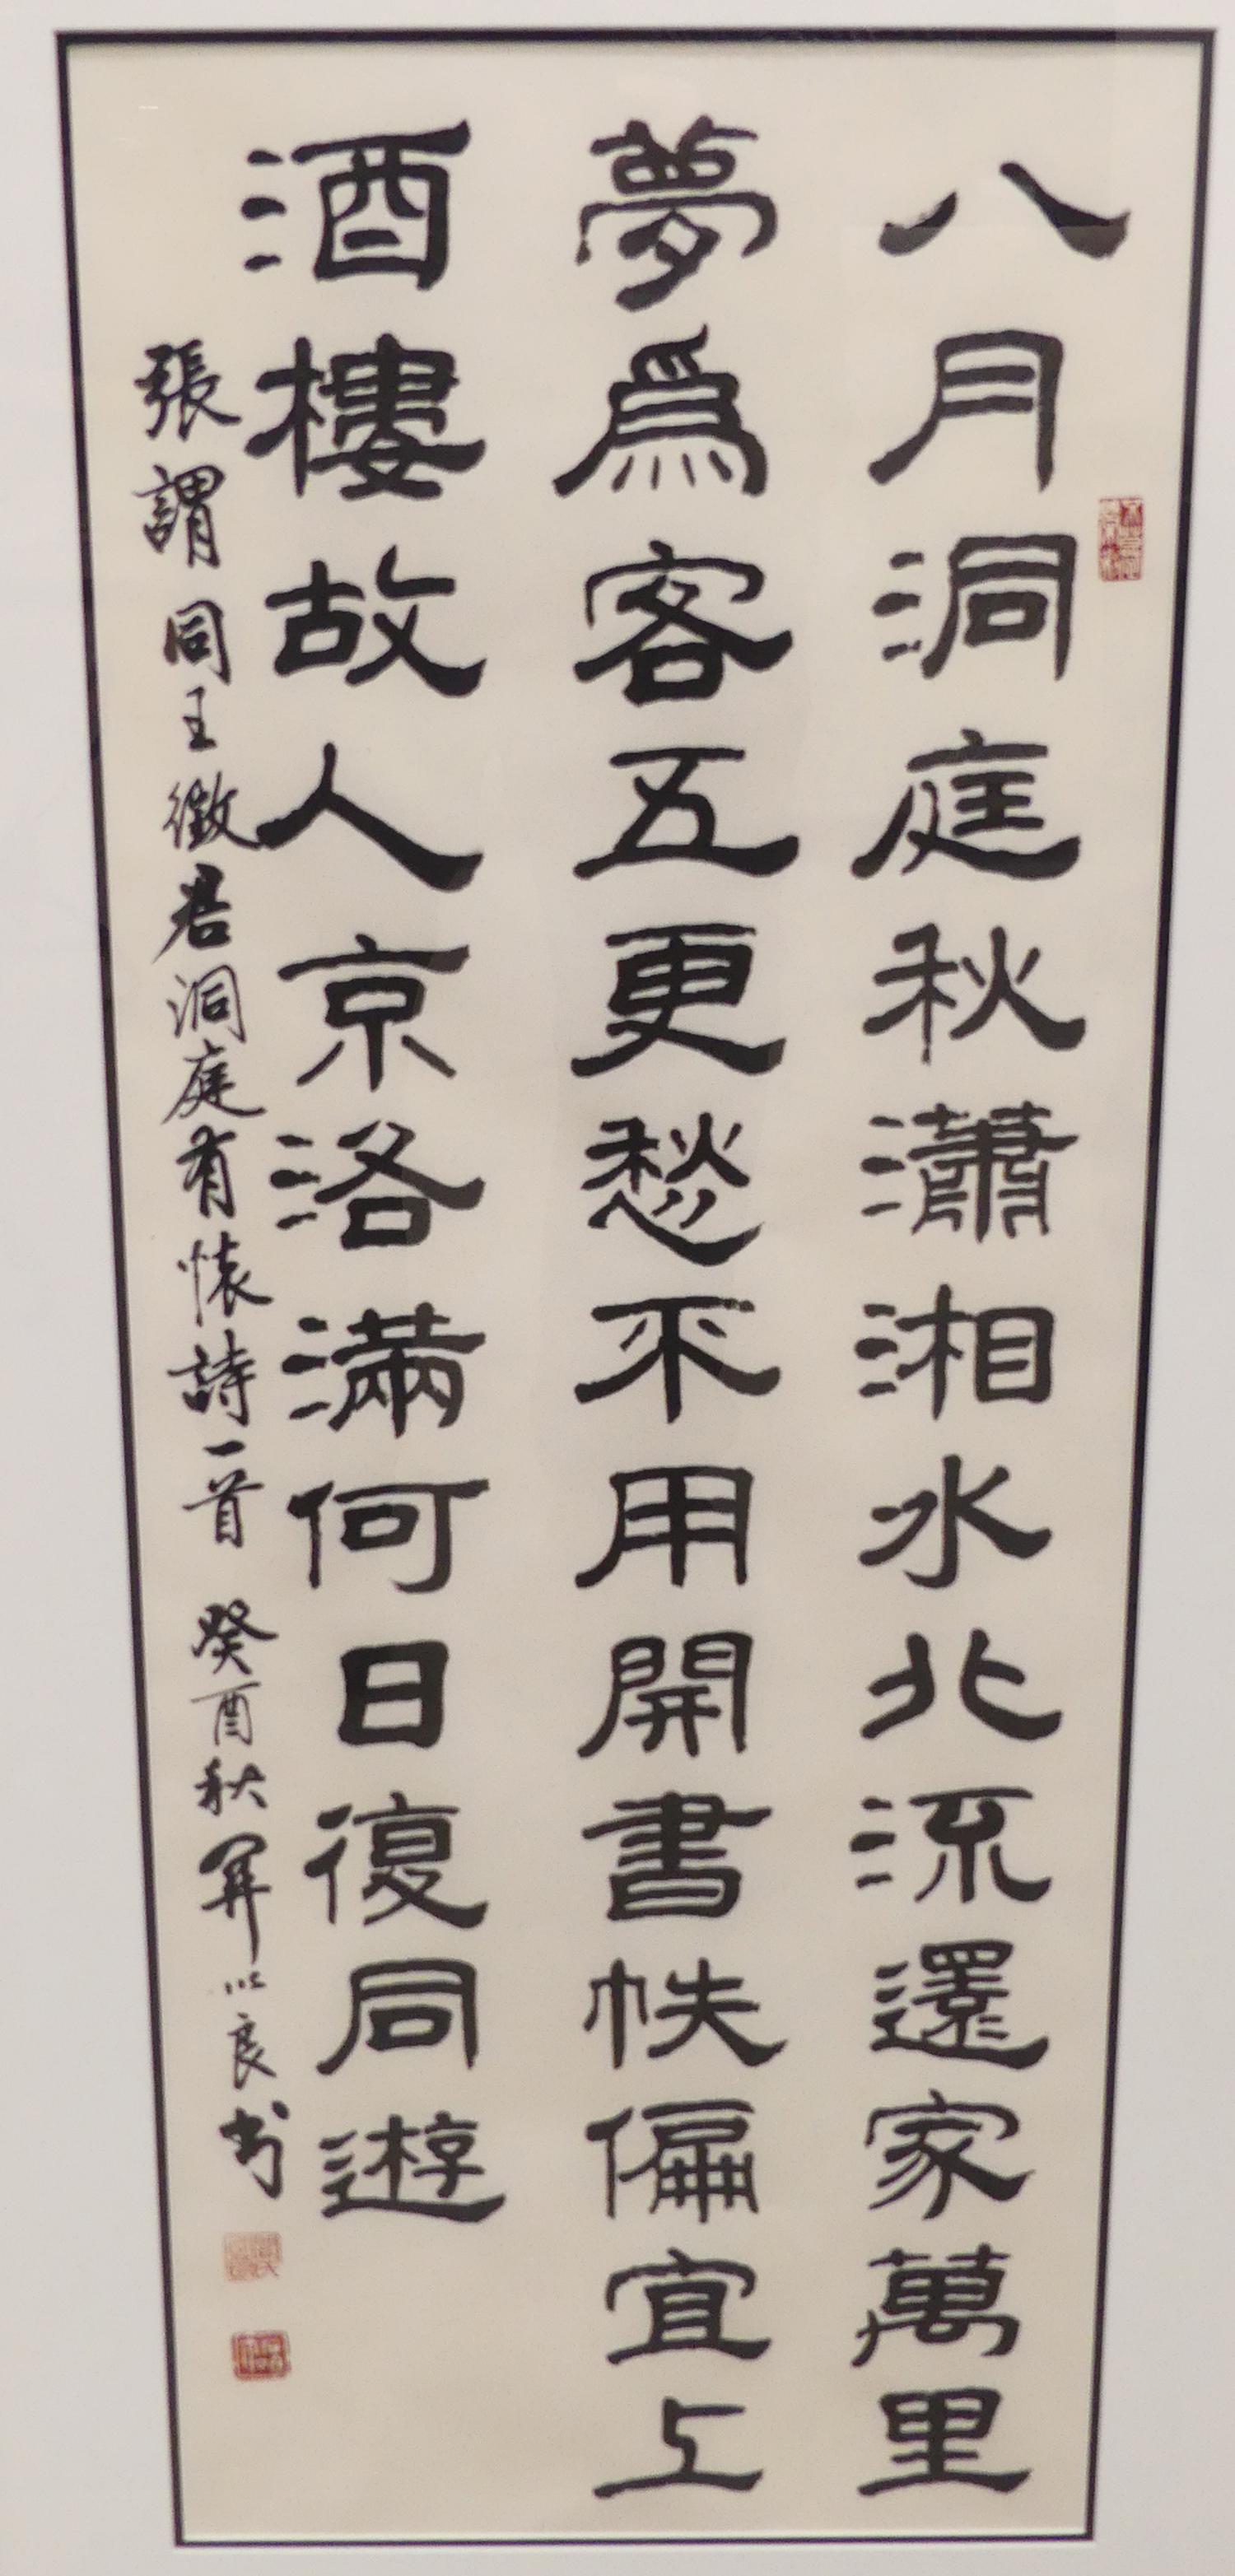 八月洞庭秋瀟湘水北流還家萬里
夢爲客五更愁不用開書帙偏宜上
酒樓故人京洛滿何日復同遊
張謂同王徵君洞庭有懷詩一首 癸酉秋 以良书